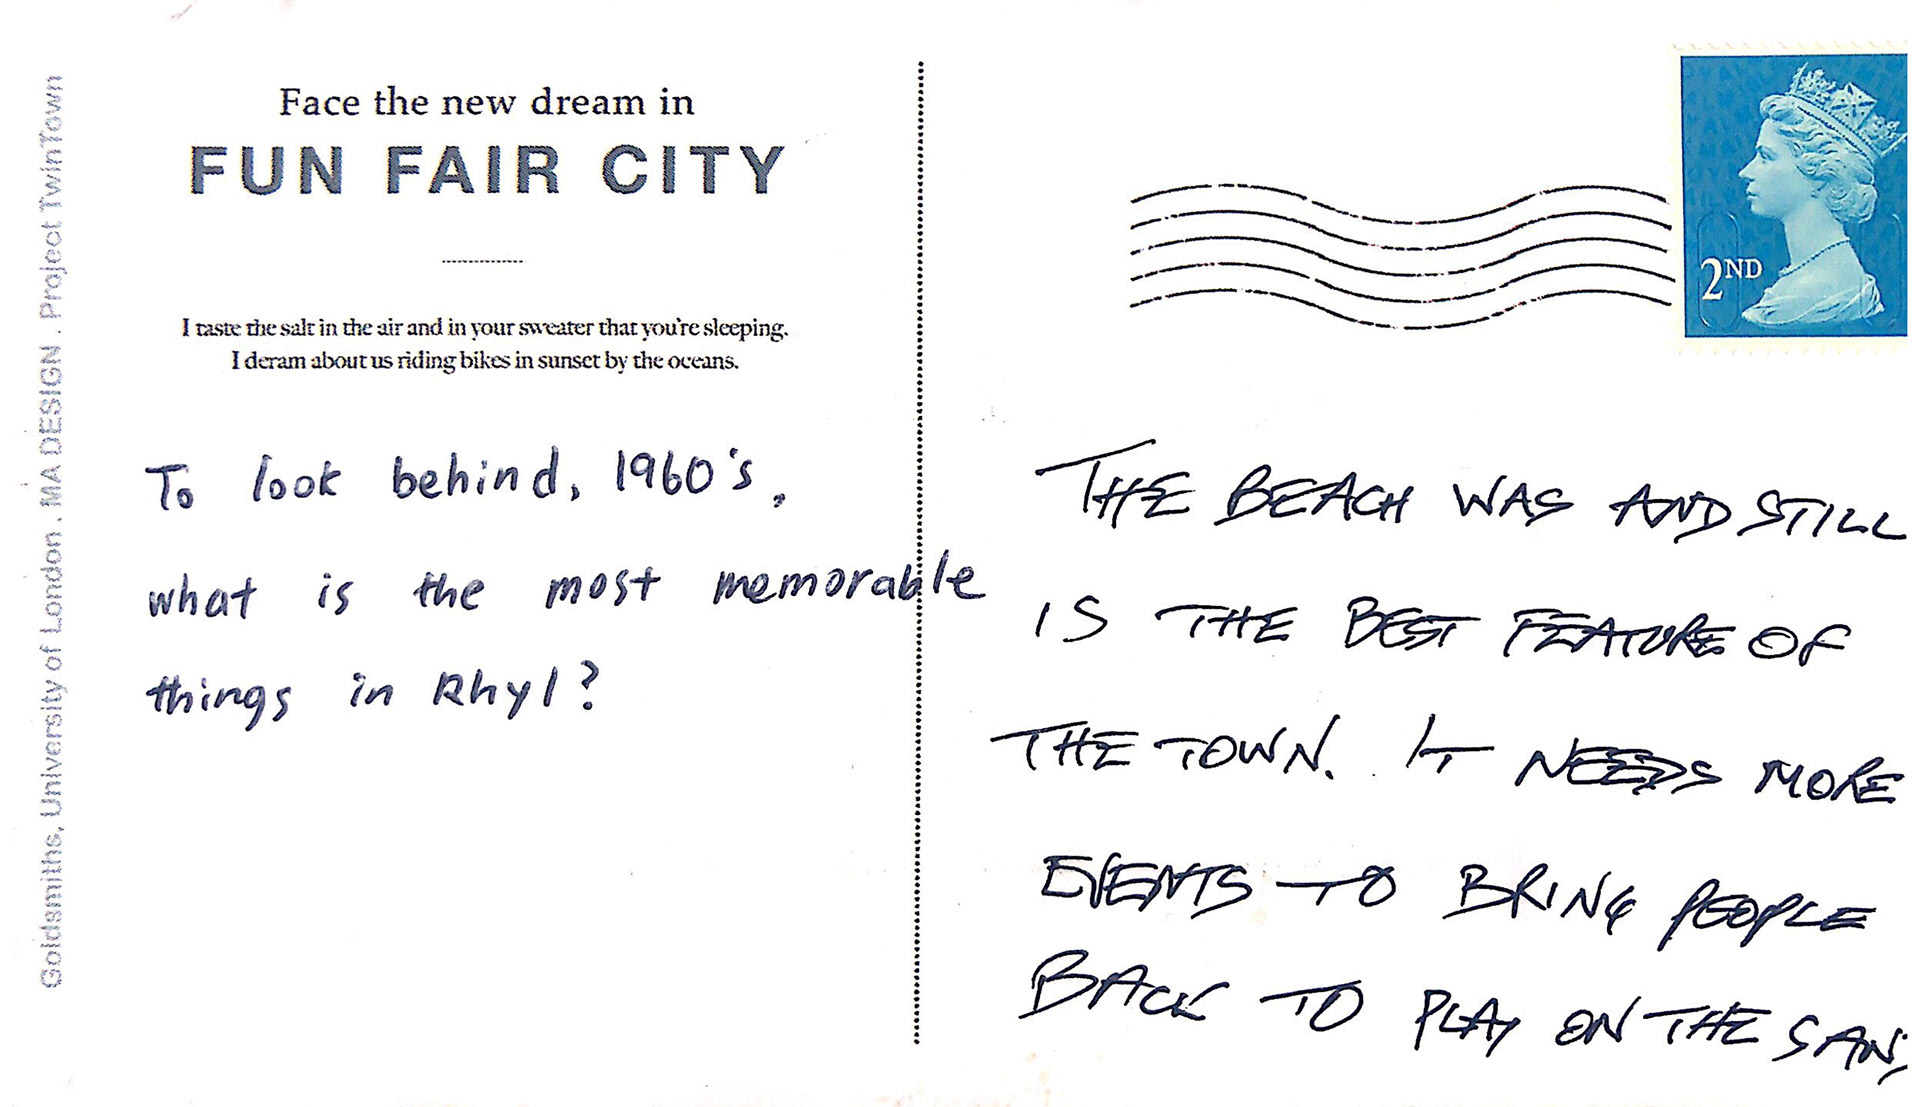 Goldsmiths, University of London. MA DESIGN. Project TwinTown
Face the new dream in
FUN FAIR CITY
I taste the salt in the air and in your sweater that you're sleeping.
I deram about us riding bikes in sunset by the oceans.
To look behind, 1960's,
what is the most memorable
things in Rhyl?
2ND
THE BEACH WAS AND STILL
IS THE BEST FEATURE OF
THE TOWN. IT NEEDS MORE
EVENTS TO BRING PEOPLE
BACK TO PLAY ON THE